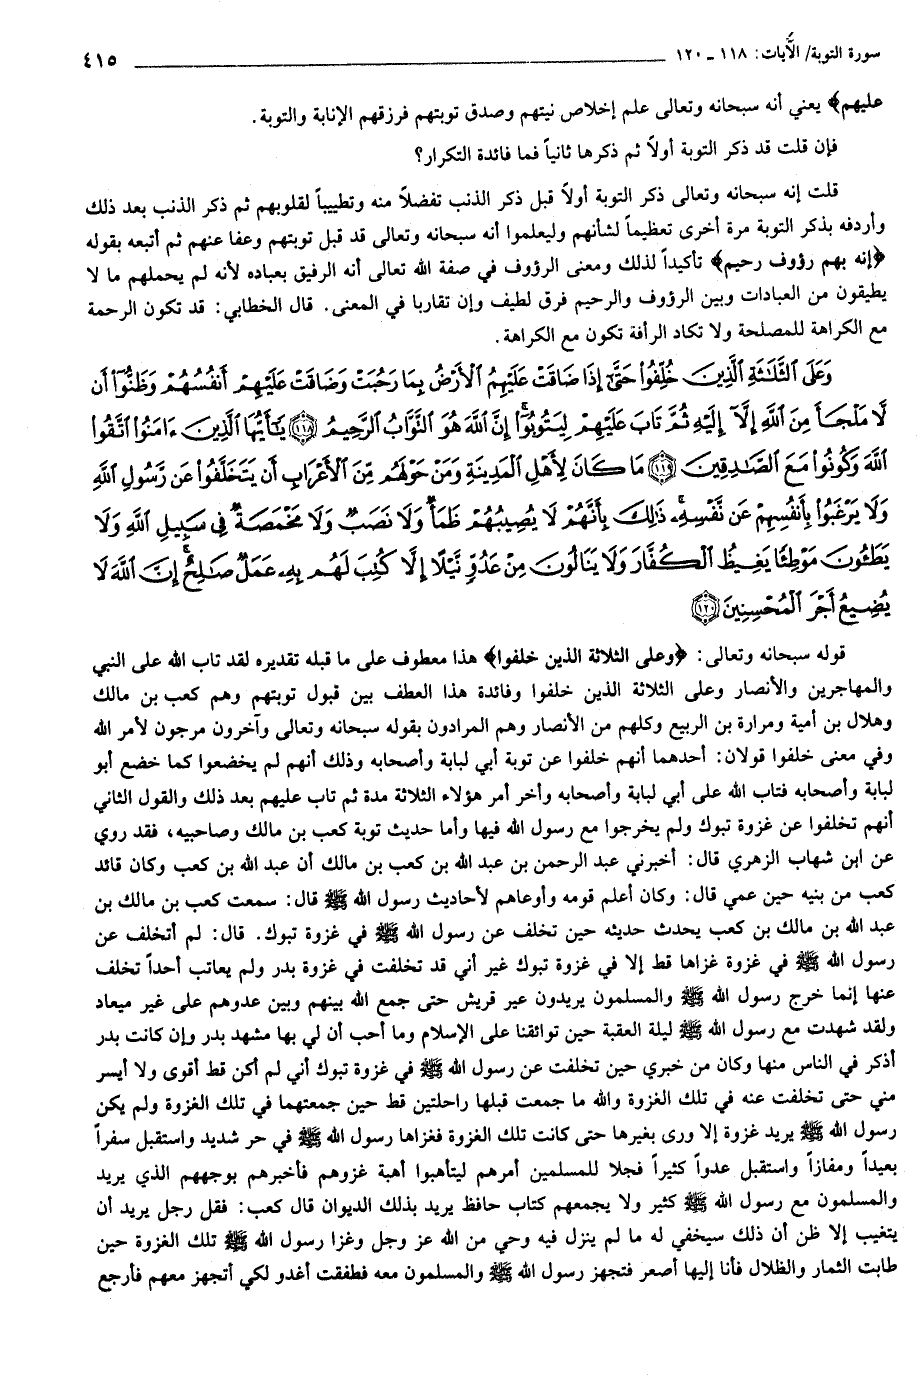 سورة التوبة/ الآيات: ١١٨ ـ ١٢٠ ٤١٥
عليهم﴾ يعني أنه سبحانه وتعالى علم إخلاص نيتهم وصدق توبتهم فرزقهم الإنابة والتوبة.
فإن قلت قد ذكر التوبة أولاً ثم ذكرها ثانياً فما فائدة التكرار؟
قلت إنه سبحانه وتعالى ذكر التوبة أولاً قبل ذكر الذنب تفضلاً منه وتطييباً لقلوبهم ثم ذكر الذنب بعد ذلك
وأردفه بذكر التوبة مرة أخرى تعظيماً لشأنهم وليعلموا أنه سبحانه وتعالى قد قبل توبتهم وعفا عنهم ثم أتبعه بقوله
﴿إنه بهم رؤوف رحيم﴾ تأكيداً لذلك ومعنى الرؤوف في صفة الله تعالى أنه الرفيق بعباده لأنه لم يحملهم ما لا
يطيقون من العبادات وبين الرؤوف والرحيم فرق لطيف وإن تقاربا في المعنى. قال الخطابي: قد تكون الرحمة
مع الكراهة للمصلحة ولا تكاد الرأفة تكون مع الكراهة.
وَعَلَى ٱلثَّلَٰثَةِ ٱلَّذِينَ خُلِّفُوا۟ حَتَّىٰٓ إِذَا ضَاقَتْ عَلَيْهِمُ ٱلْأَرْضُ بِمَا رَحُبَتْ وَضَاقَتْ عَلَيْهِمْ أَنفُسُهُمْ وَظَنُّوٓا۟ أَن
لَّا مَلْجَأَ مِنَ ٱللَّهِ إِلَّآ إِلَيْهِ ثُمَّ تَابَ عَلَيْهِمْ لِيَتُوبُوٓا۟ۚ إِنَّ ٱللَّهَ هُوَ ٱلتَّوَّابُ ٱلرَّحِيمُ ۝١١٨ يَٰٓأَيُّهَا ٱلَّذِينَ ءَامَنُوا۟ ٱتَّقُوا۟
ٱللَّهَ وَكُونُوا۟ مَعَ ٱلصَّٰدِقِينَ ۝١١٩ مَا كَانَ لِأَهْلِ ٱلْمَدِينَةِ وَمَنْ حَوْلَهُم مِّنَ ٱلْأَعْرَابِ أَن يَتَخَلَّفُوا۟ عَن رَّسُولِ ٱللَّهِ
وَلَا يَرْغَبُوا۟ بِأَنفُسِهِمْ عَن نَّفْسِهِۦۚ ذَٰلِكَ بِأَنَّهُمْ لَا يُصِيبُهُمْ ظَمَأٌ وَلَا نَصَبٌ وَلَا مَخْمَصَةٌ فِى سَبِيلِ ٱللَّهِ وَلَا
يَطَـُٔونَ مَوْطِئًا يَغِيظُ ٱلْكُفَّارَ وَلَا يَنَالُونَ مِنْ عَدُوٍّ نَّيْلًا إِلَّا كُتِبَ لَهُم بِهِۦ عَمَلٌ صَٰلِحٌۚ إِنَّ ٱللَّهَ لَا
يُضِيعُ أَجْرَ ٱلْمُحْسِنِينَ ۝١٢٠
قوله سبحانه وتعالى: ﴿وعلى الثلاثة الذين خلفوا﴾ هذا معطوف على ما قبله تقديره لقد تاب الله على النبي
والمهاجرين والأنصار وعلى الثلاثة الذين خلفوا وفائدة هذا العطف بين قبول توبتهم وهم كعب بن مالك
وهلال بن أمية ومرارة بن الربيع وكلهم من الأنصار وهم المرادون بقوله سبحانه وتعالى وآخرون مرجون لأمر الله
وفي معنى خلفوا قولان: أحدهما أنهم خلفوا عن توبة أبي لبابة وأصحابه وذلك أنهم لم يخضعوا كما خضع أبو
لبابة وأصحابه فتاب الله على أبي لبابة وأصحابه وأخر أمر هؤلاء الثلاثة مدة ثم تاب عليهم بعد ذلك والقول الثاني
أنهم تخلفوا عن غزوة تبوك ولم يخرجوا مع رسول الله فيها وأما حديث توبة كعب بن مالك وصاحبيه، فقد روي
عن ابن شهاب الزهري قال: أخبرني عبد الرحمن بن عبد الله بن كعب بن مالك أن عبد الله بن كعب وكان قائد
كعب من بنيه حين عمي قال: وكان أعلم قومه وأوعاهم لأحاديث رسول الله ﷺ قال: سمعت كعب بن مالك بن
عبد الله بن مالك بن كعب يحدث حديثه حين تخلف عن رسول الله ﷺ في غزوة تبوك. قال: لم أتخلف عن
رسول الله ﷺ في غزوة غزاها قط إلا في غزوة تبوك غير أني قد تخلفت في غزوة بدر ولم يعاتب أحداً تخلف
عنها إنما خرج رسول الله ﷺ والمسلمون يريدون عير قريش حتى جمع الله بينهم وبين عدوهم على غير ميعاد
ولقد شهدت مع رسول الله ﷺ ليلة العقبة حين تواثقنا على الإسلام وما أحب أن لي بها مشهد بدر وإن كانت بدر
أذكر في الناس منها وكان من خبري حين تخلفت عن رسول الله ﷺ في غزوة تبوك أني لم أكن قط أقوى ولا أيسر
مني حتى تخلفت عنه في تلك الغزوة والله ما جمعت قبلها راحلتين قط حين جمعتهما في تلك الغزوة ولم يكن
رسول الله ﷺ يريد غزوة إلا ورى بغيرها حتى كانت تلك الغزوة فغزاها رسول الله ﷺ في حر شديد واستقبل سفراً
بعيداً ومفازاً واستقبل عدواً كثيراً فجلا للمسلمين أمرهم ليتأهبوا أهبة غزوهم فأخبرهم بوجههم الذي يريد
والمسلمون مع رسول الله ﷺ كثير ولا يجمعهم كتاب حافظ يريد بذلك الديوان قال كعب: فقل رجل يريد أن
يتغيب إلا ظن أن ذلك سيخفي له ما لم ينزل فيه وحي من الله عز وجل وغزا رسول الله ﷺ تلك الغزوة حين
طابت الثمار والظلال فأنا إليها أصعر فتجهز رسول الله ﷺ والمسلمون معه فطفقت أغدو لكي أتجهز معهم فأرجع